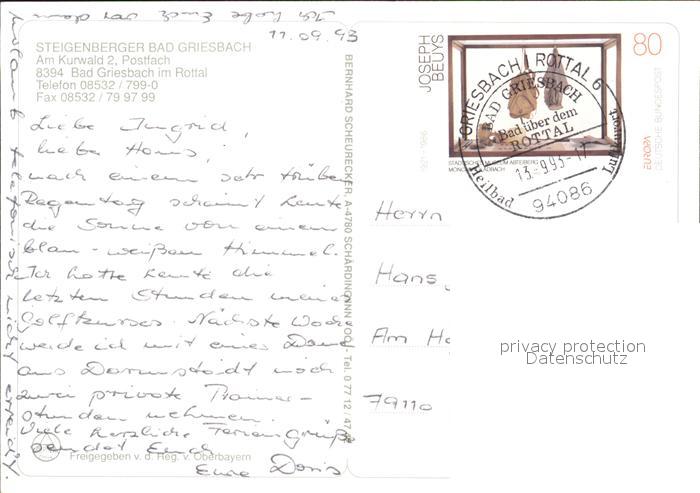 Ich habe Euch vor dem
Urlaub telefonisch nicht erreicht.
11.09.93
STEIGENBERGER BAD GRIESBACH
Am Kurwald 2, Postfach
8394 Bad Griesbach im Rottal
Telefon 08532 / 799-0
Fax 08532 / 79 97 99
Liebe Ingrid,
lieber Hans,
nach einem sehr trüben
Regentag scheint heute
die Sonne von einem
blau-weißen Himmel.
Ich hatte heute die
letzten Stunden meines
Golfkurses. Nächste Woche
werde ich mit einer Dame
aus Darmstadt noch
zwei private Trainer-
stunden nehmen.
Viele herzliche Feriengrüße
sendet Euch
Eure Doris
Freigegeben v. d. Reg. v. Oberbayern
BERNHARD SCHEURECKER, A-4780 SCHÄRDING/INN Tel. 0 77 12 / 47
JOSEPH
BEUYS
1921-1986
80
STÄDTISCHES MUSEUM ABTEIBERG
MÖNCHENGLADBACH
EUROPA
DEUTSCHE BUNDESPOST
GRIESBACH I ROTTAL 6
BAD GRIESBACH
Bad über dem
ROTTAL
13.-9.93-17
Heilbad
Luftkurort
94086
Herrn
Hans
Am
79110
privacy protection
Datenschutz